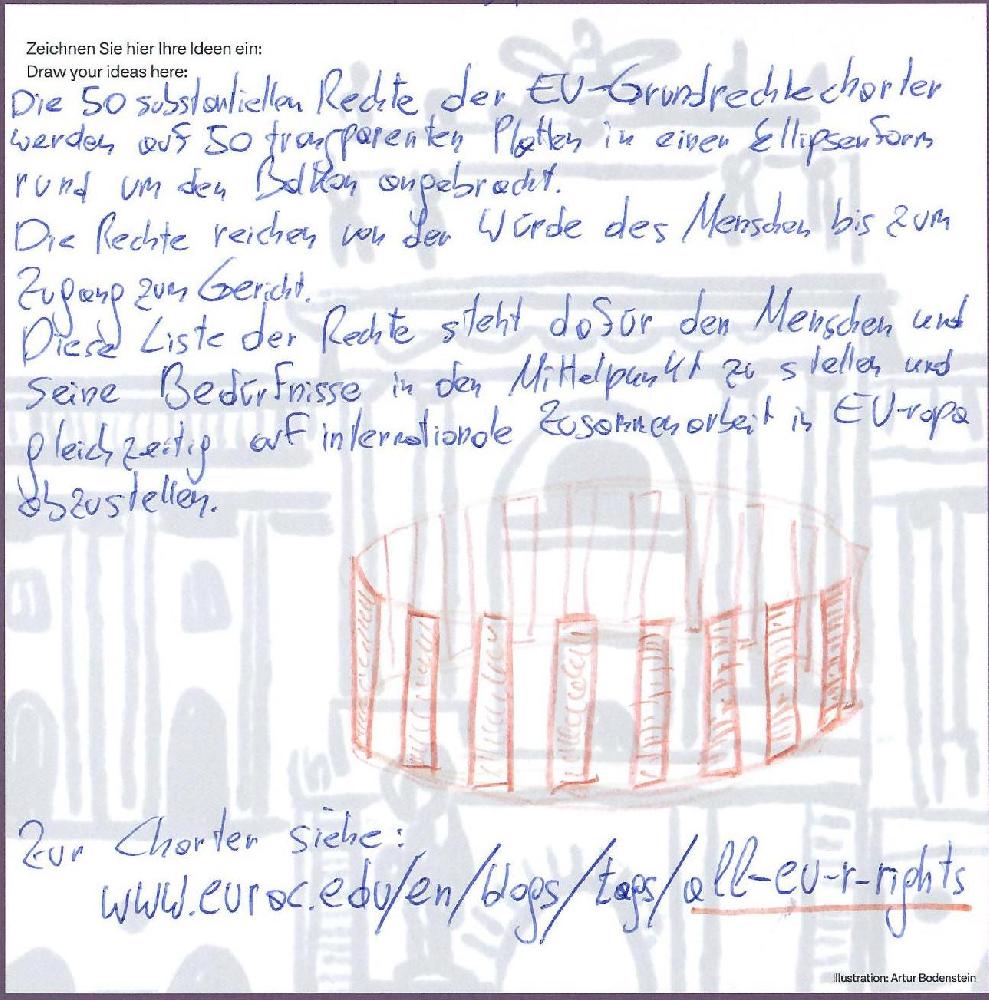 Zeichnen Sie hier Ihre Ideen ein:
Draw your ideas here:
Die 50 substantiellen Rechte der EU-Grundrechtecharter
werden auf 50 transparenten Platten in einer Ellipsenform
rund um den Balkon angebracht.
Die Rechte reichen von der Würde des Menschen bis zum
Zugang zum Gericht.
Diese Liste der Rechte steht dafür den Menschen und
seine Bedürfnisse in den Mittelpunkt zu stellen und
gleichzeitig auf internationale Zusammenarbeit in EU-ropa
abzustellen.
Zur Charter siehe:
www.eurac.edu/en/blogs/tags/all-eu-r-rights
Illustration: Artur Bodenstein